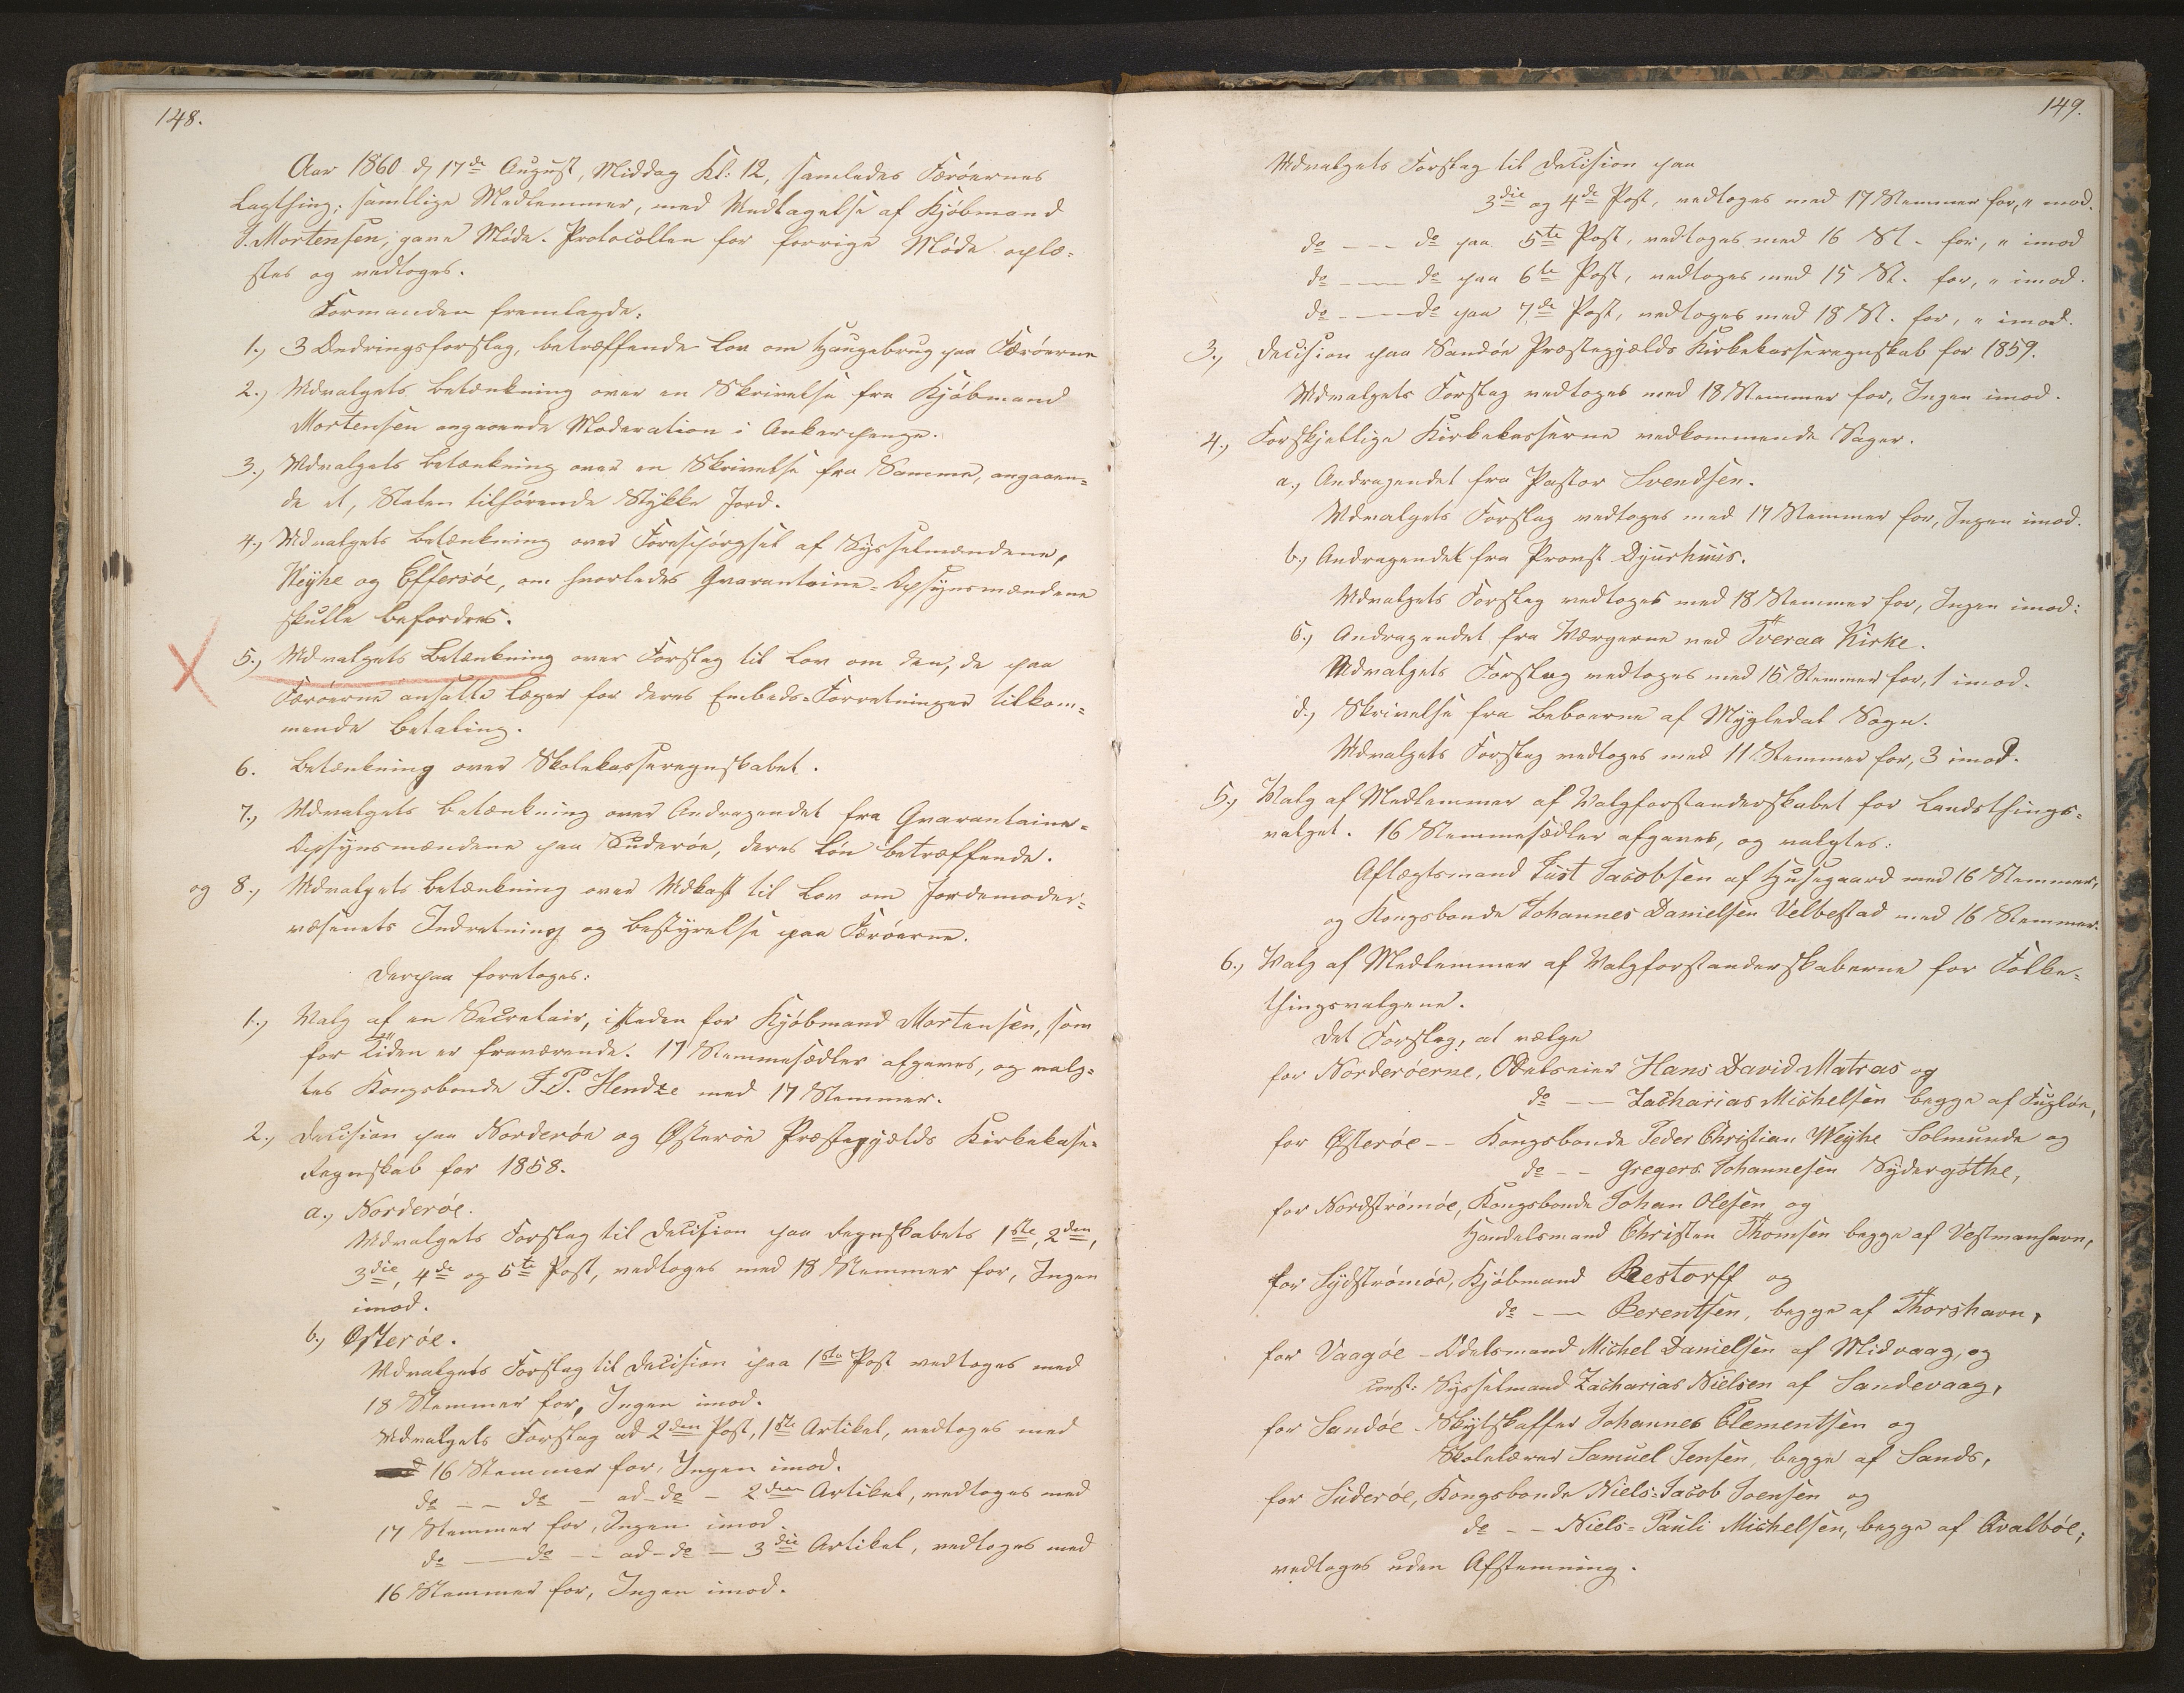 148.
Aar 1860 d. 17de August, Middag Kl. 12, samledes Færöernes
Lagthing; samtlige Medlemmer, med Undtagelse af Kjöbmand
J. Mortensen, gave Möde. Protocollen for forrige Möde oplæ=
stes og vedtoges.
Formanden fremlagde:
1.) 3 Ændringsforslag, betræffende Lov om Haugebrug paa Færöerne
2.) Udvalgets Betænkning over en Skrivelse fra Kjöbmand
Mortensen angaaende Moderation i Ankerpenge.
3.) Udvalgets Betænkning over en Skrivelse fra Samme, angaaen=
de et, Staten tilhörende Stykke Jord.
4.) Udvalgets Betænkning over Forespörgsel af Sysselmændene,
Weyhe og Effersöe, om hvorledes Qvarantaine=Opsynsmændene
skulle befordres.
5.) Udvalgets Betænkning over Forslag til Lov om den, de paa
Færöerne ansatte Læger for deres Embeds=Forretninger tilkom=
mende Betaling.
6. Betænkning over Skolekasseregnskabet.
7.) Udvalgets Betænkning over Andragendet fra Qvarantaine=
Opsynsmændene paa Suderöe, deres Lön betræffende.
og 8.) Udvalgets Betænkning over Udkast til Lov om Jordemoder=
væsenets Indretning og Bestyrelse paa Færöerne.
Derpaa foretoges:
1.) Valg af en Secretair, isteden for Kjöbmand Mortensen, som
for Tiden er fraværende. 17 Stemmesedler afgaves, og valg=
tes Kongsbonde J. P. Hendze med 17 Stemmer.
2.) Decision paa Norderöe og Østeröe Præstegjælds Kirkekasse=
Regnskab for 1858.
a.) Norderöe.
Udvalgets Forslag til Decision paa Regnskabets 1ste, 2den,
3die, 4de og 5te Post, vedtoges med 18 Stemmer for, Ingen
imod.
b.) Østeröe.
Udvalgets Forslag til Decision paa 1ste Post vedtoges med
18 Stemmer for, Ingen imod.
Udvalgets Forslag ad 2den Post, 1ste Artikel, vedtoges med
16 Stemmer for, Ingen imod.
do - - do - ad - do - 2den Artikel, vedtoges med
17 Stemmer for, Ingen imod.
do - - do - - ad - do - 3die Artikel, vedtoges med
16 Stemmer for, Ingen imod.
149.
Udvalgets Forslag til Decision paa
3die og 4de Post, vedtoges med 17 Stemmer for, " imod.
do - - - do paa 5te Post, vedtoges med 16 St. for, " imod
do - - - do paa 6te Post, vedtoges med 15 St. for, " imod.
do - - - do paa 7de Post, vedtoges med 18 St. for, " imod.
3.) Decision paa Sandöe Præstegjælds Kirkekasseregnskab for 1859.
Udvalgets Forslag vedtoges med 18 Stemmer for, Ingen imod.
4.) Forskjellige Kirkekasserne vedkommende Sager.
a.) Andragendet fra Pastor Svendsen.
Udvalgets Forslag vedtoges med 17 Stemmer for, Ingen imod.
b.) Andragendet fra Provst Djurhuus.
Udvalgets Forslag vedtoges med 18 Stemmer for, Ingen imod:
c.) Andragendet fra Værgerne ved Tveraa Kirke.
Udvalgets Forslag vedtoges med 15 Stemmer for, 1 imod.
d.) Skrivelse fra Beboerne af Mygledal Sogn.
Udvalgets Forslag vedtoges med 11 Stemmer for, 3 imod.
5.) Valg af Medlemmer af Valgforstanderskabet for Landsthings=
valget. 16 Stemmesedler afgaves, og valgtes:
Aftægtsmand Just Jacobsen af Husegaard med 16 Stemmer,
og Kongsbonde Johannes Danielsen Velbestad med 16 Stemmer.
6.) Valg af Medlemmer af Valgforstanderskaberne for Folke=
thingsvalgene.
Det Forslag, at vælge
for Norderöerne, Odelseier Hans David Matras og
do - - Zacharias Michelsen begge af Fuglöe,
for Østeröe - - Kongsbonde Peder Christian Weyhe Solmunde og
do - - Gregers Johannesen Sydergöthe,
for Nordströmöe, Kongsbonde Johan Olesen og
Handelsmand Christen Thomsen begge af Vestmanhavn,
for Sydströmöe, Kjöbmand Restorff og
do - - Berentsen, begge af Thorshavn,
for Vaagöe - Odelsmand Michel Danielsen af Midvaag, og
const: Sysselmand Zacharias Nielsen af Sandevaag,
for Sandöe - Skydskaffer Johannes Clementsen og
Skolelærer Samuel Jensen, begge af Sands,
for Suderöe, Kongsbonde Niels=Jacob Joensen og
do - - Niels=Pauli Michelsen, begge af Qvalböe;
vedtoges uden Afstemning.